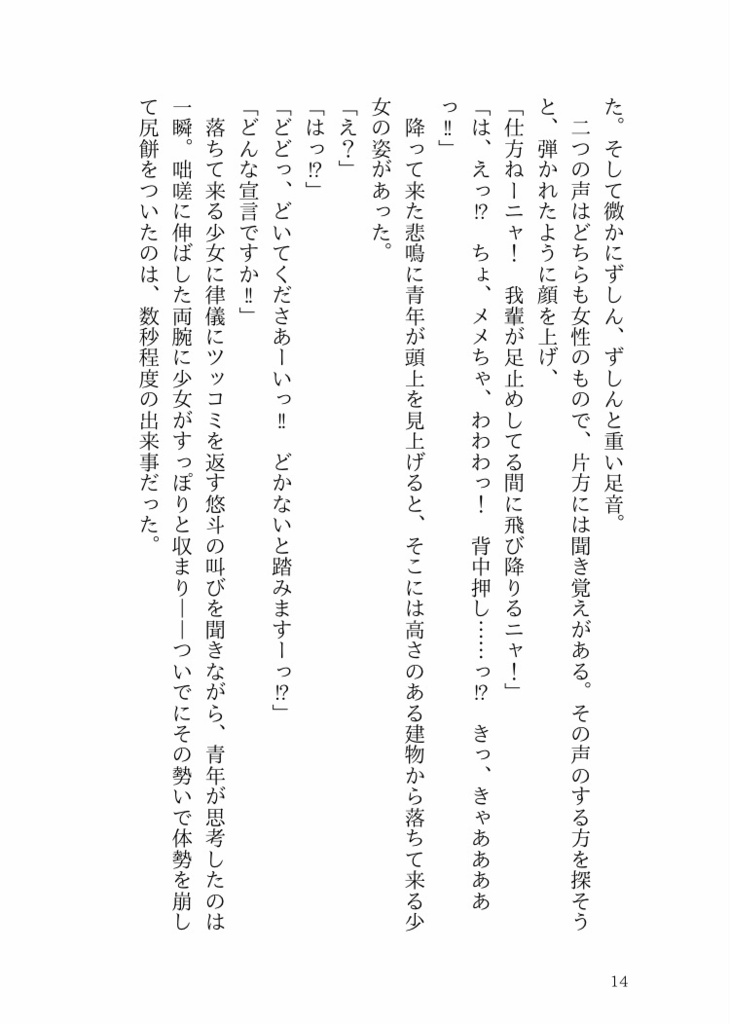 た。そして微かにずしん、ずしんと重い足音。
　二つの声はどちらも女性のもので、片方には聞き覚えがある。その声のする方を探そう
と、弾かれたように顔を上げ、
「仕方ねーニャ！　我輩が足止めしてる間に飛び降りるニャ！」
「は、えっ⁉　ちょ、メメちゃ、わわわっ！　背中押し……っ⁉　きっ、きゃああああ
っ‼」
　降って来た悲鳴に青年が頭上を見上げると、そこには高さのある建物から落ちて来る少
女の姿があった。
「え？」
「はっ⁉」
「どどっ、どいてくださあーいっ‼　どかないと踏みますーっ⁉」
「どんな宣言ですか‼」
　落ちて来る少女に律儀にツッコミを返す悠斗の叫びを聞きながら、青年が思考したのは
一瞬。咄嗟に伸ばした両腕に少女がすっぽりと収まり——ついでにその勢いで体勢を崩し
て尻餅をついたのは、数秒程度の出来事だった。
14